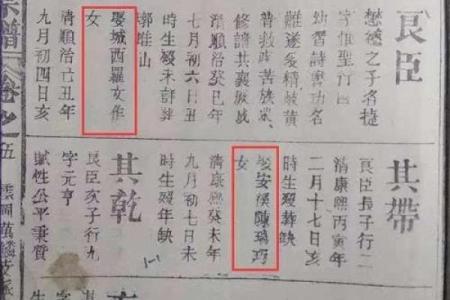 良臣
懋德之子名捷
字惟聖行四
幼習詩書功名
難遂多精岐黄
普救政苦族衆
修譜共襄厥成
清順治癸巳年
七月初六日丑
時生殁未詳葬
娶城西羅文作
女
清順治己丑年
九月初四日亥
其帶
良臣長子行二
清康熙丙寅年
二月十七日亥
時生殁葬缺
娶安侯陳瑞巧
女
清康熙癸未年
九月初七日未
時生殁年缺
其乾
良臣次子行九
字元亨
賦性公平秉質
宗譜
卷之五